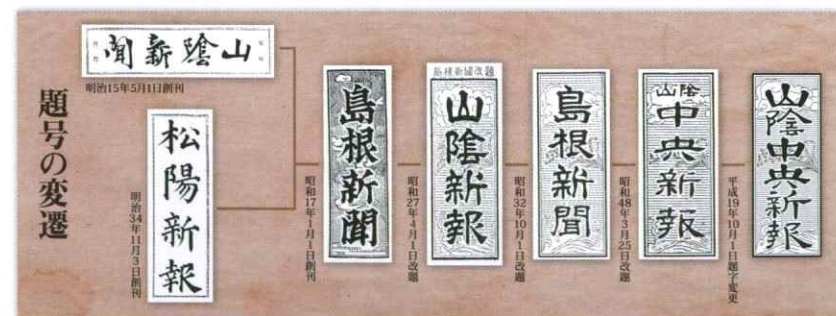 題号の変遷
山陰新聞
明治15年5月1日創刊
松陽新報
明治34年11月3日創刊
島根新聞
昭和17年1月1日創刊
島根新聞改題
山陰新報
昭和27年4月1日改題
島根新聞
昭和32年10月1日改題
山陰
中央新報
昭和48年3月25日改題
山陰中央新報
平成19年10月1日題字変更